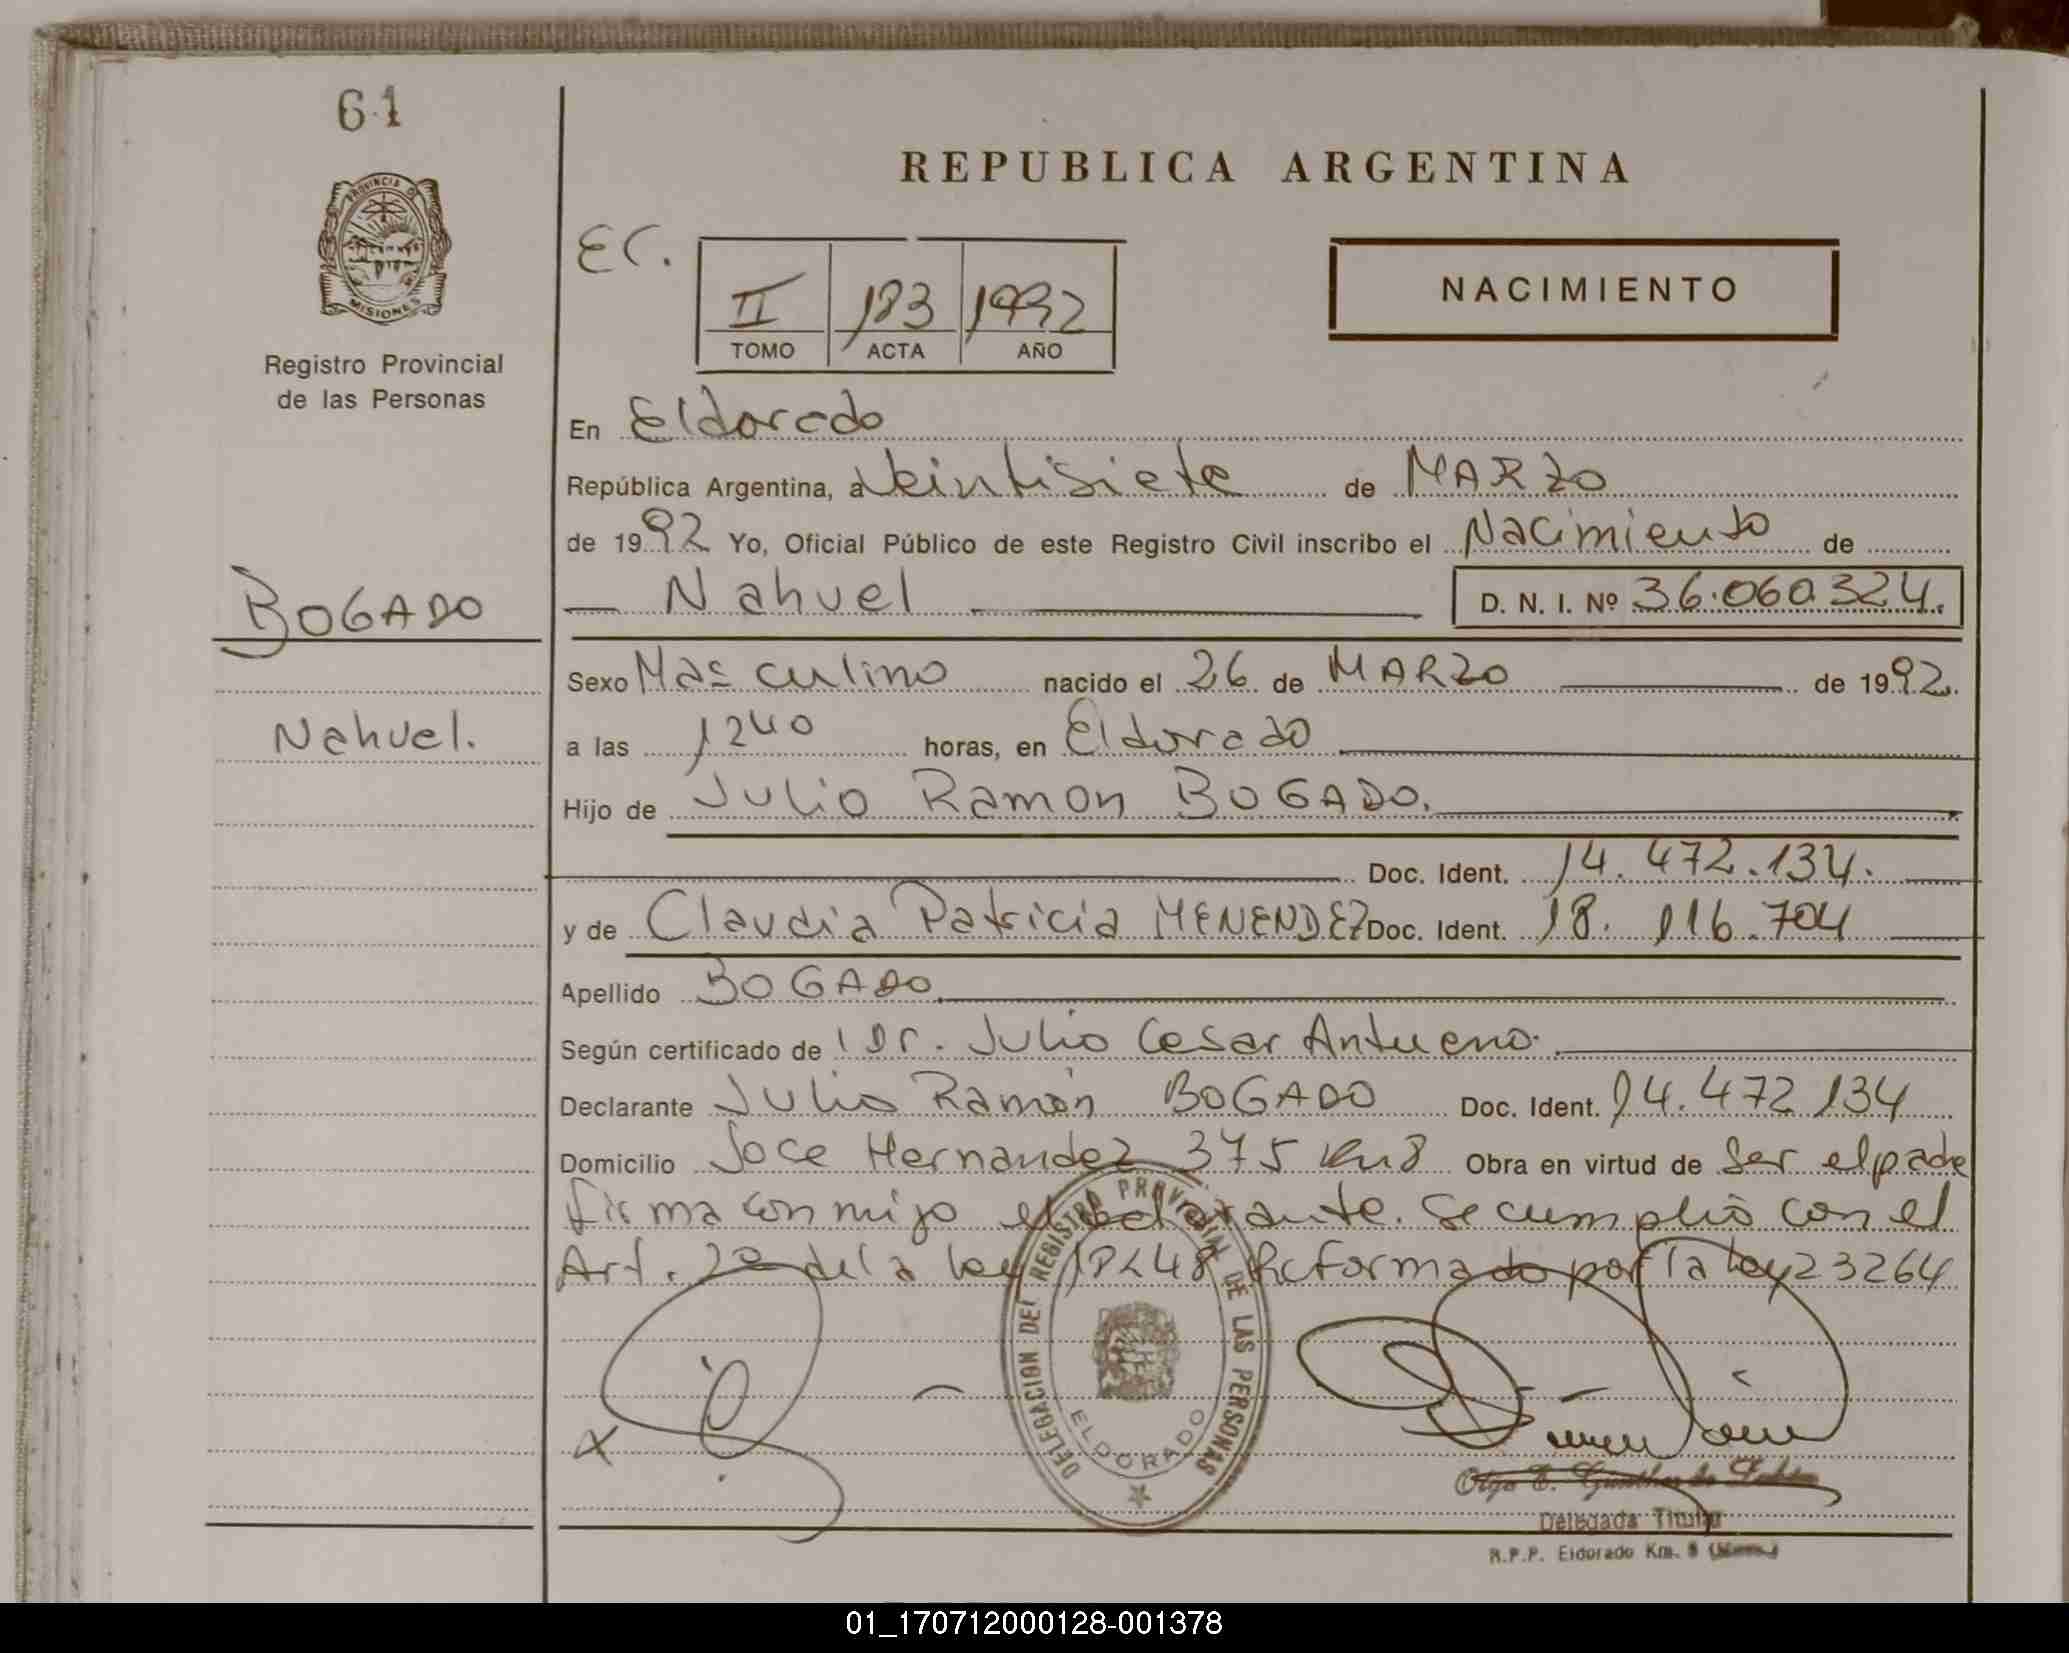 61
REPUBLICA ARGENTINA
PROVINCIA D
MISIONES
Registro Provincial
de las Personas
EC.
II 183 1992
TOMO ACTA AÑO
NACIMIENTO
En Eldorado
República Argentina, a Veintisiete de MARZO
de 1992 Yo, Oficial Público de este Registro Civil inscribo el Nacimiento de
BOGADO
Nahuel D. N. I. Nº 36.060.324.
Sexo Masculino nacido el 26 de MARZO de 1992.
Nahuel.
a las 1240 horas, en Eldorado
Hijo de Julio Ramon BOGADO.
Doc. Ident. 14.472.134.
y de Claudia Patricia MENENDEZ Doc. Ident. 18. 116.704
Apellido BOGADO
Según certificado de Dr. Julio Cesar Antueno.
Declarante Julio Ramón BOGADO Doc. Ident. 14.472 134
Domicilio Joce Hernandez 375 Km8 Obra en virtud de Ser el padre
firma conmigo el declarante. Se cumplió con el
Art. 2º de la Ley 18248 Reformado por la Ley 23264
DELEGACION DEL REGISTRO PROVINCIAL DE LAS PERSONAS
ELDORADO
Olga E.
Delegada Titular
R.P.P. Eldorado Km. 8
01_170712000128-001378